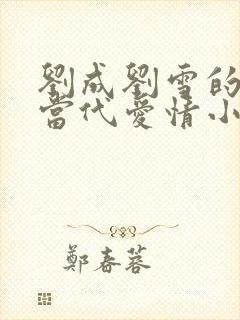 劉成劉雪的
當代愛情小
鄭春蓉